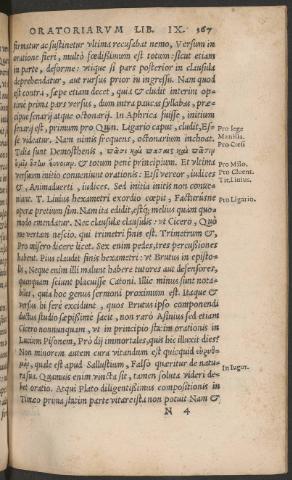 ORATORIARVM LIB. IX. 567
firmatur ac sustinetur vltima recusabat nemo, Versum in
oratione fieri, multò fœdissimum est totum: sicut etiam
in parte, deforme: vtique si pars posterior in clausula
deprehendatur, aut rursus prior in ingressu. Nam quod
est contrà, sæpe etiam decet, quia & cludit interim op-
timè prima pars versus, dum intra paucas syllabas, præ-
cipuè senarij atque octonarij. In Aphrica fuisse, initium
senarij est, primum pro Q. Ligario caput, cludit, Es-
se videatur. Nam nimis frequens, octonarium inchoat.
Pro lege
Manilia.
Pro Cœl
Talia sunt Demosthenis,
& totum penè principium. Et vltima
versuum initio conueniunt orationis: Etsi vereor, iudices
&, Animaduerti, iudices. Sed initia initiis non conue-
niunt. T. Liuius hexametri exordio cœpit, Facturúsne
operæ pretium sim. Nam ita edidit, estq; melius quàm quo-
modo emendatur. Nec clausulæ clausulis: vt Cicero, Quò
me vertam nescio. qui trimetri finis est. Trimetrum &,
Pro misero dicere licet. Sex enim pedes, tres percussiones
habent. Peius cludit finis hexametri: vt Brutus in episto-
lis, Neque enim illi malunt habere tutores aut defensores,
quanquam sciunt placuisse Catoni. Illic minus sunt nota-
biles, quia hoc genus sermonis proximum est. Itaque &
versus hi ferè excidunt, quos Brutus ipso componendi
ductus studio sæpissimè facit, non rarò Asinius sed etiam
Cicero nonnunquam, vt in principio statim orationis in
Lucium Pisonem, Prô dij immortales, quis hic illuxit dies?
Non minorem autem cura vitandum est quicquid
quale est apud Sallustium, Falsò quæritur de natu-
ra sua. Quamuis enim vincta sit, tamen soluta videri de-
bet oratio. Atqui Plato diligentissimus compositionis in
Timæo prima statim parte vitare ista non potuit Nam &
Pro Milo.
Pro Cluent.
Tit. Liuius.
Pro Ligario.
In Iugur.
N 4